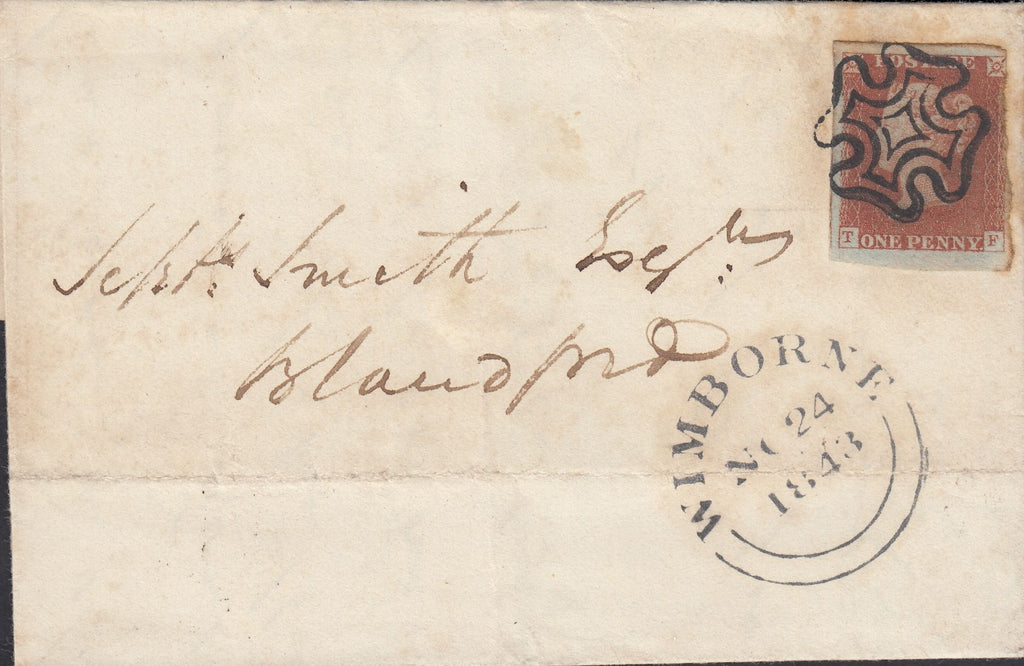 POSTAGE
T ONE PENNY. F
Septs. Smith Esqre
Blandford
WIMBORNE
NO 24
1843